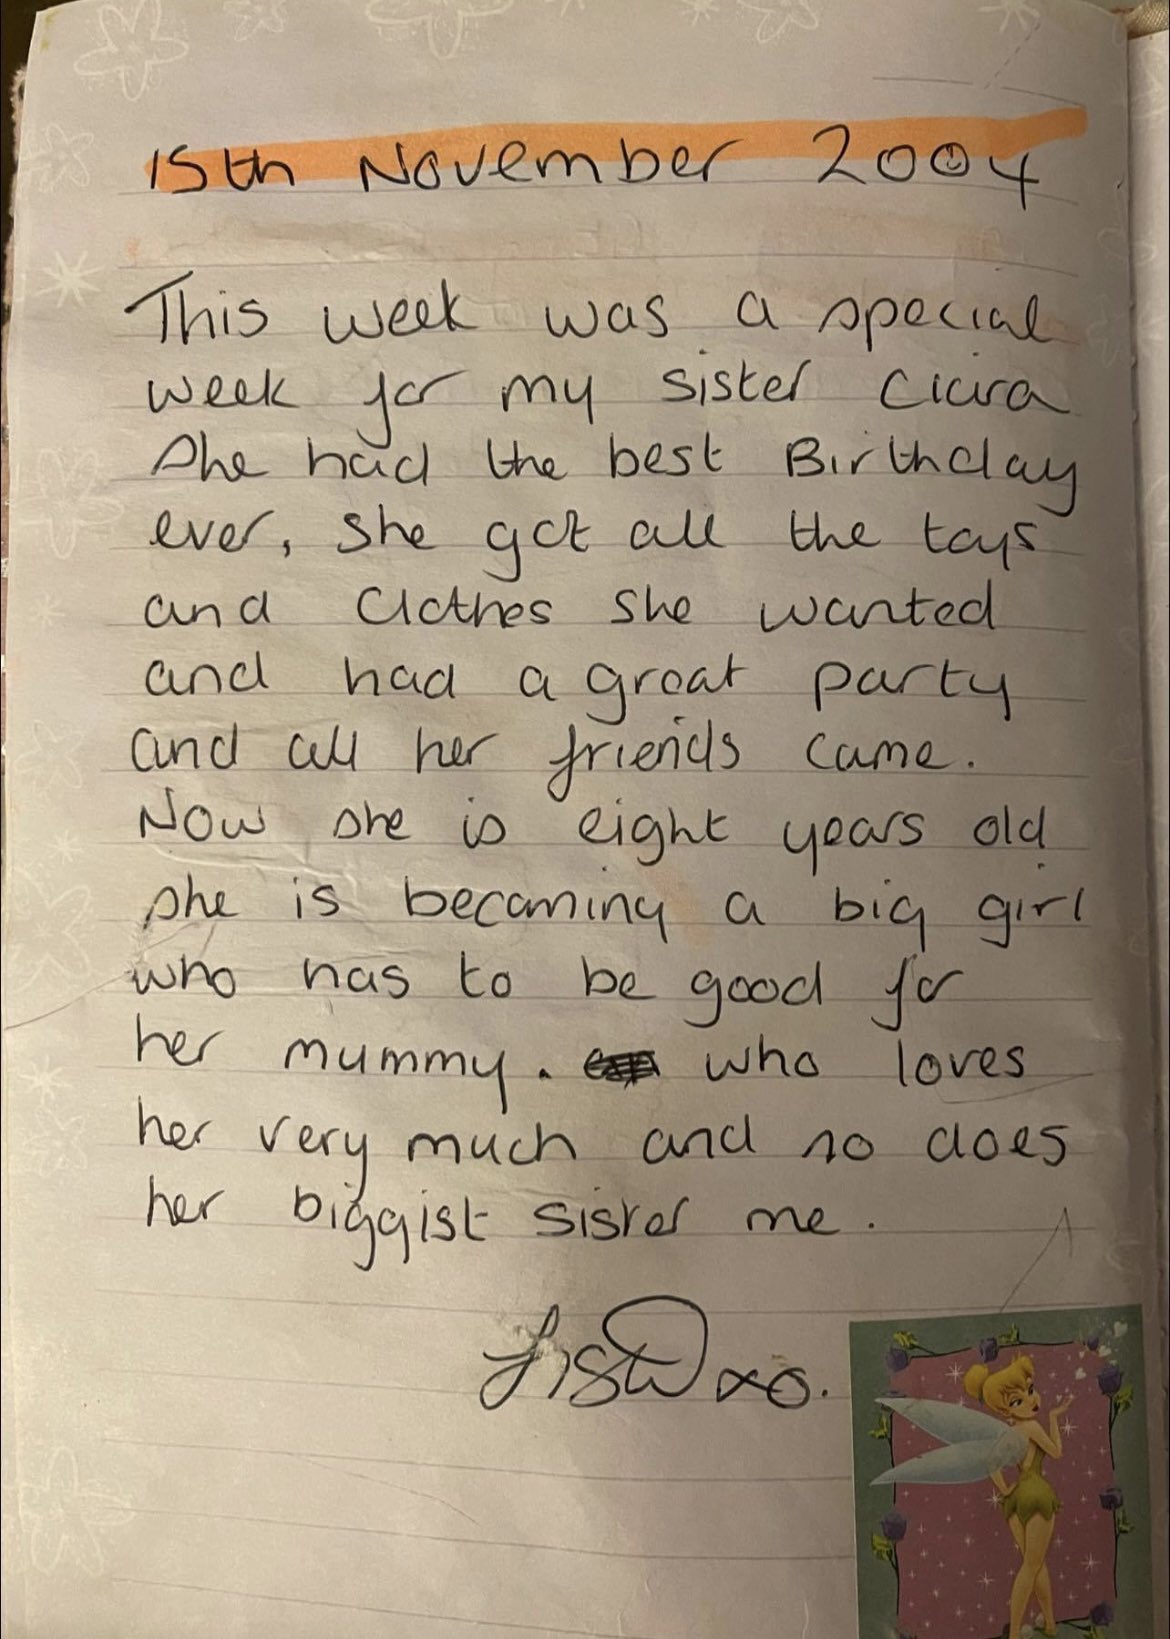 15th November 2004
This week was a special
week for my sister Ciara
She had the best Birthday
ever, she got all the toys
and Clothes she wanted
and had a great party
and all her friends came.
Now she is eight years old
she is becoming a big girl
who has to be good for
her mummy. who loves
her very much and so does
her biggist sister me.
xo.